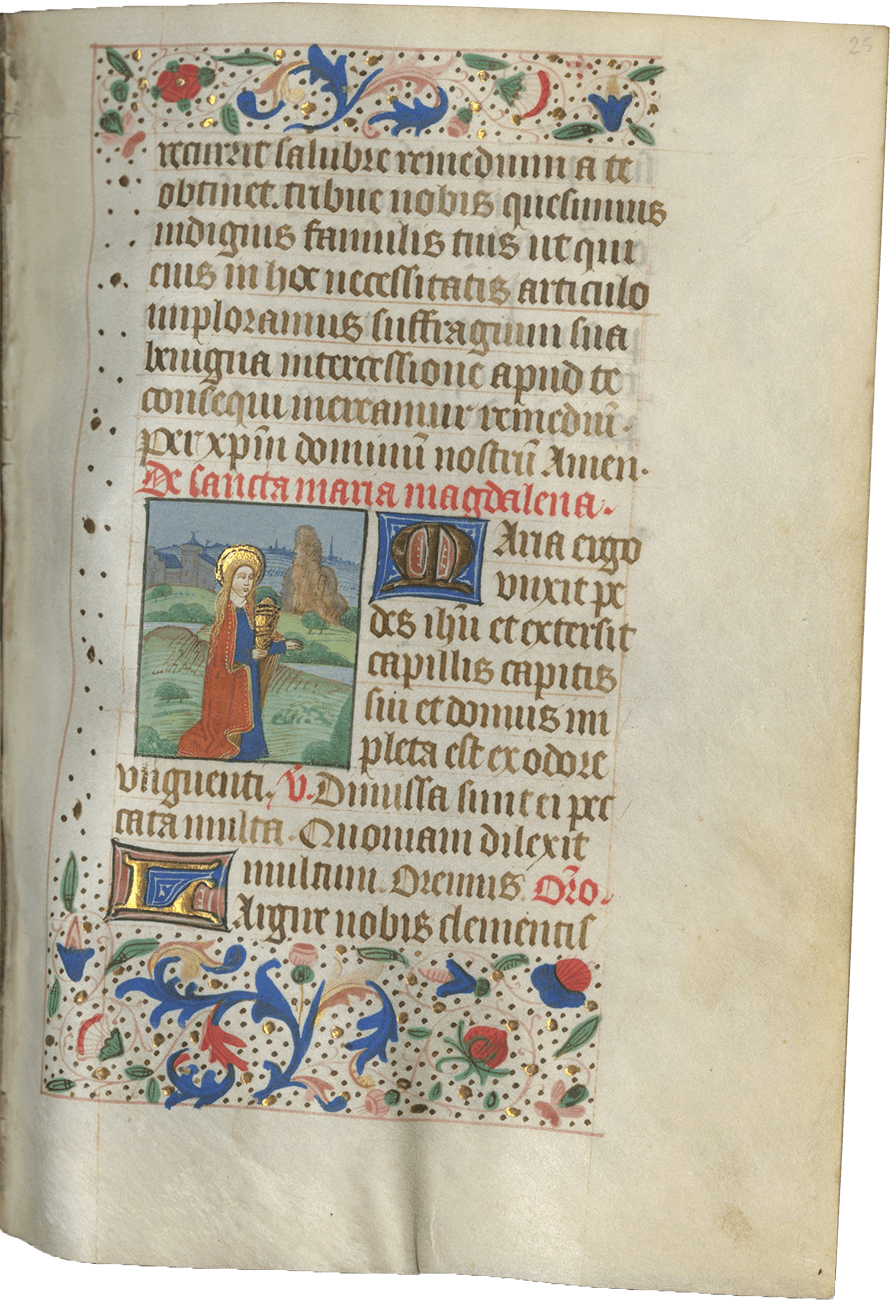 25
recurrit salubre remedium a te
obtinet. tribue nobis quesumus
indignis famulis tuis ut qui
eius in hoc necessitatis articulo
imploramus suffragium sua
benigna intercessione apud te
consequi mereamur remediū.
per xp̄m dominū nostrū Amen.
De sancta maria magdalena.
Maria ergo
vnxit pe
des ihū et extersit
capillis capitis
sui et domus im
pleta est ex odore
vnguenti. v̄. Dimissa sunt ei pec
cata multa. Quoniam dilexit
multum. Oremus. Or̄o.
Largire nobis clementis